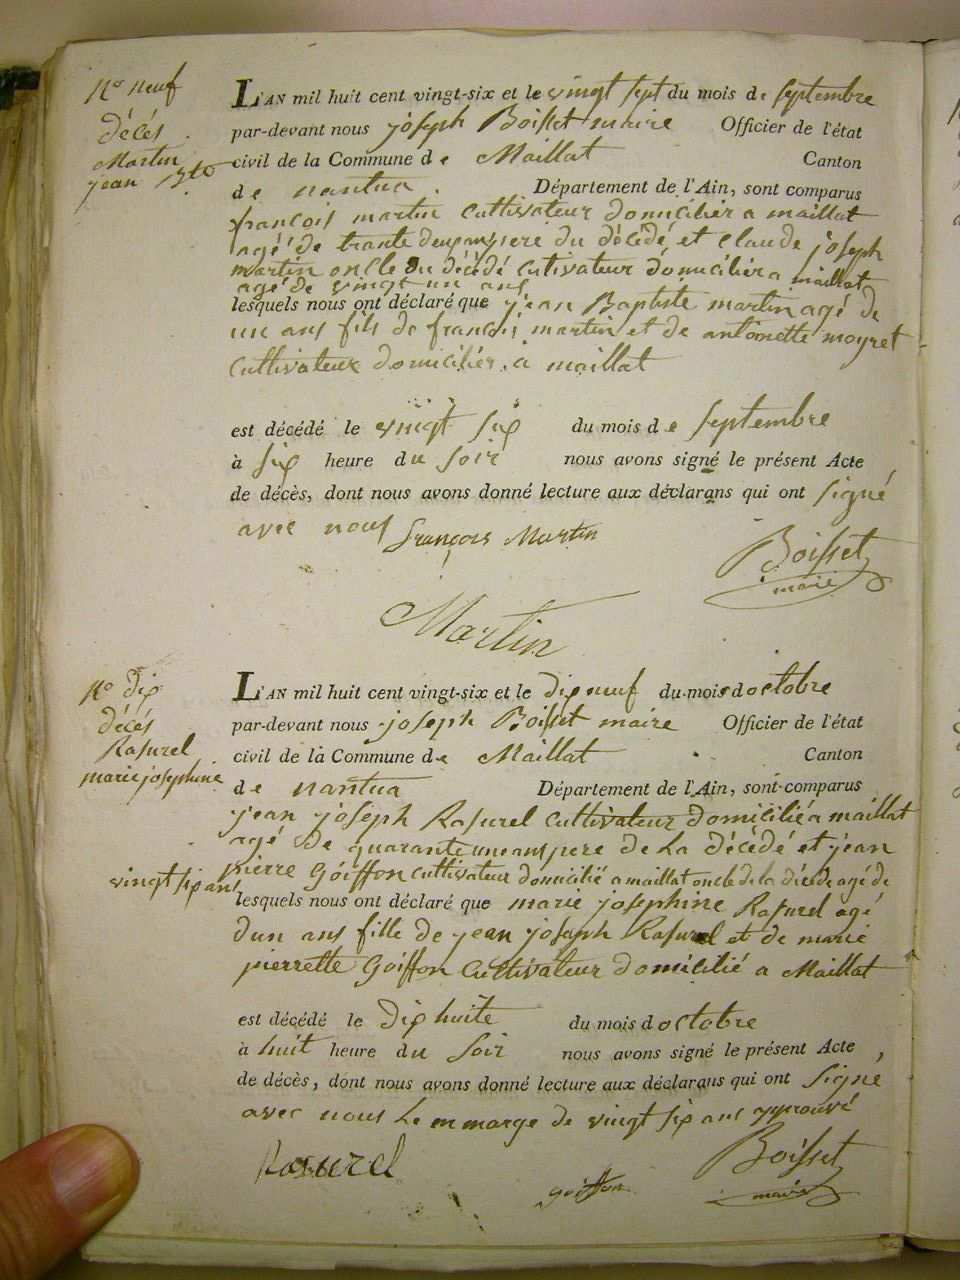 No neuf
décés
Martin
jean Bte
L'AN mil huit cent vingt-six et le vingt sept du mois de septembre
par-devant nous joseph Boisset maire Officier de l'état
civil de la Commune de Maillat Canton
de nantua. Département de l'Ain, sont comparus
françois martin cultivateur domicilier a maillat
agé de trante deux ans pere du décédé et claude joseph
martin oncle du décédé cutivateur domicilier a maillat
agé de vingt un ans
lesquels nous ont déclaré que jean Baptiste martin agé de
un ans fils de françois martin et de antoinette moyret
cultivateur domicilier a maillat
est décédé le vingt six du mois de septembre
à six heure du soir nous avons signé le présent Acte
de décès, dont nous avons donné lecture aux déclarans qui ont signé
avec nous françois Martin
Boisset
maire
Martin
No dix
décés
Rasurel
marie josephine
L'AN mil huit cent vingt-six et le dix neuf du mois d octobre
par-devant nous joseph Boisset maire Officier de l'état
civil de la Commune de Maillat Canton
de nantua Département de l'Ain, sont comparus
jean joseph Rasurel cultivateur domicilié a maillat
agé de quarante un ans pere de la décédé et jean
pierre Goiffon cultivateur domicilié a maillat oncle de la décédé agé de
vingt six ans
lesquels nous ont déclaré que marie josephine Rasurel agé
dun ans fille de jean joseph Rasurel et de marie
pierrette Goiffon cultivateur domicilié a Maillat
est décédé le dix huite du mois d octobre
à huit heure du soir nous avons signé le présent Acte,
de décès, dont nous avons donné lecture aux déclarans qui ont signé
avec nous Le en marge de vingt six ans approuvé
Rasurel
goiffon
Boisset
maire